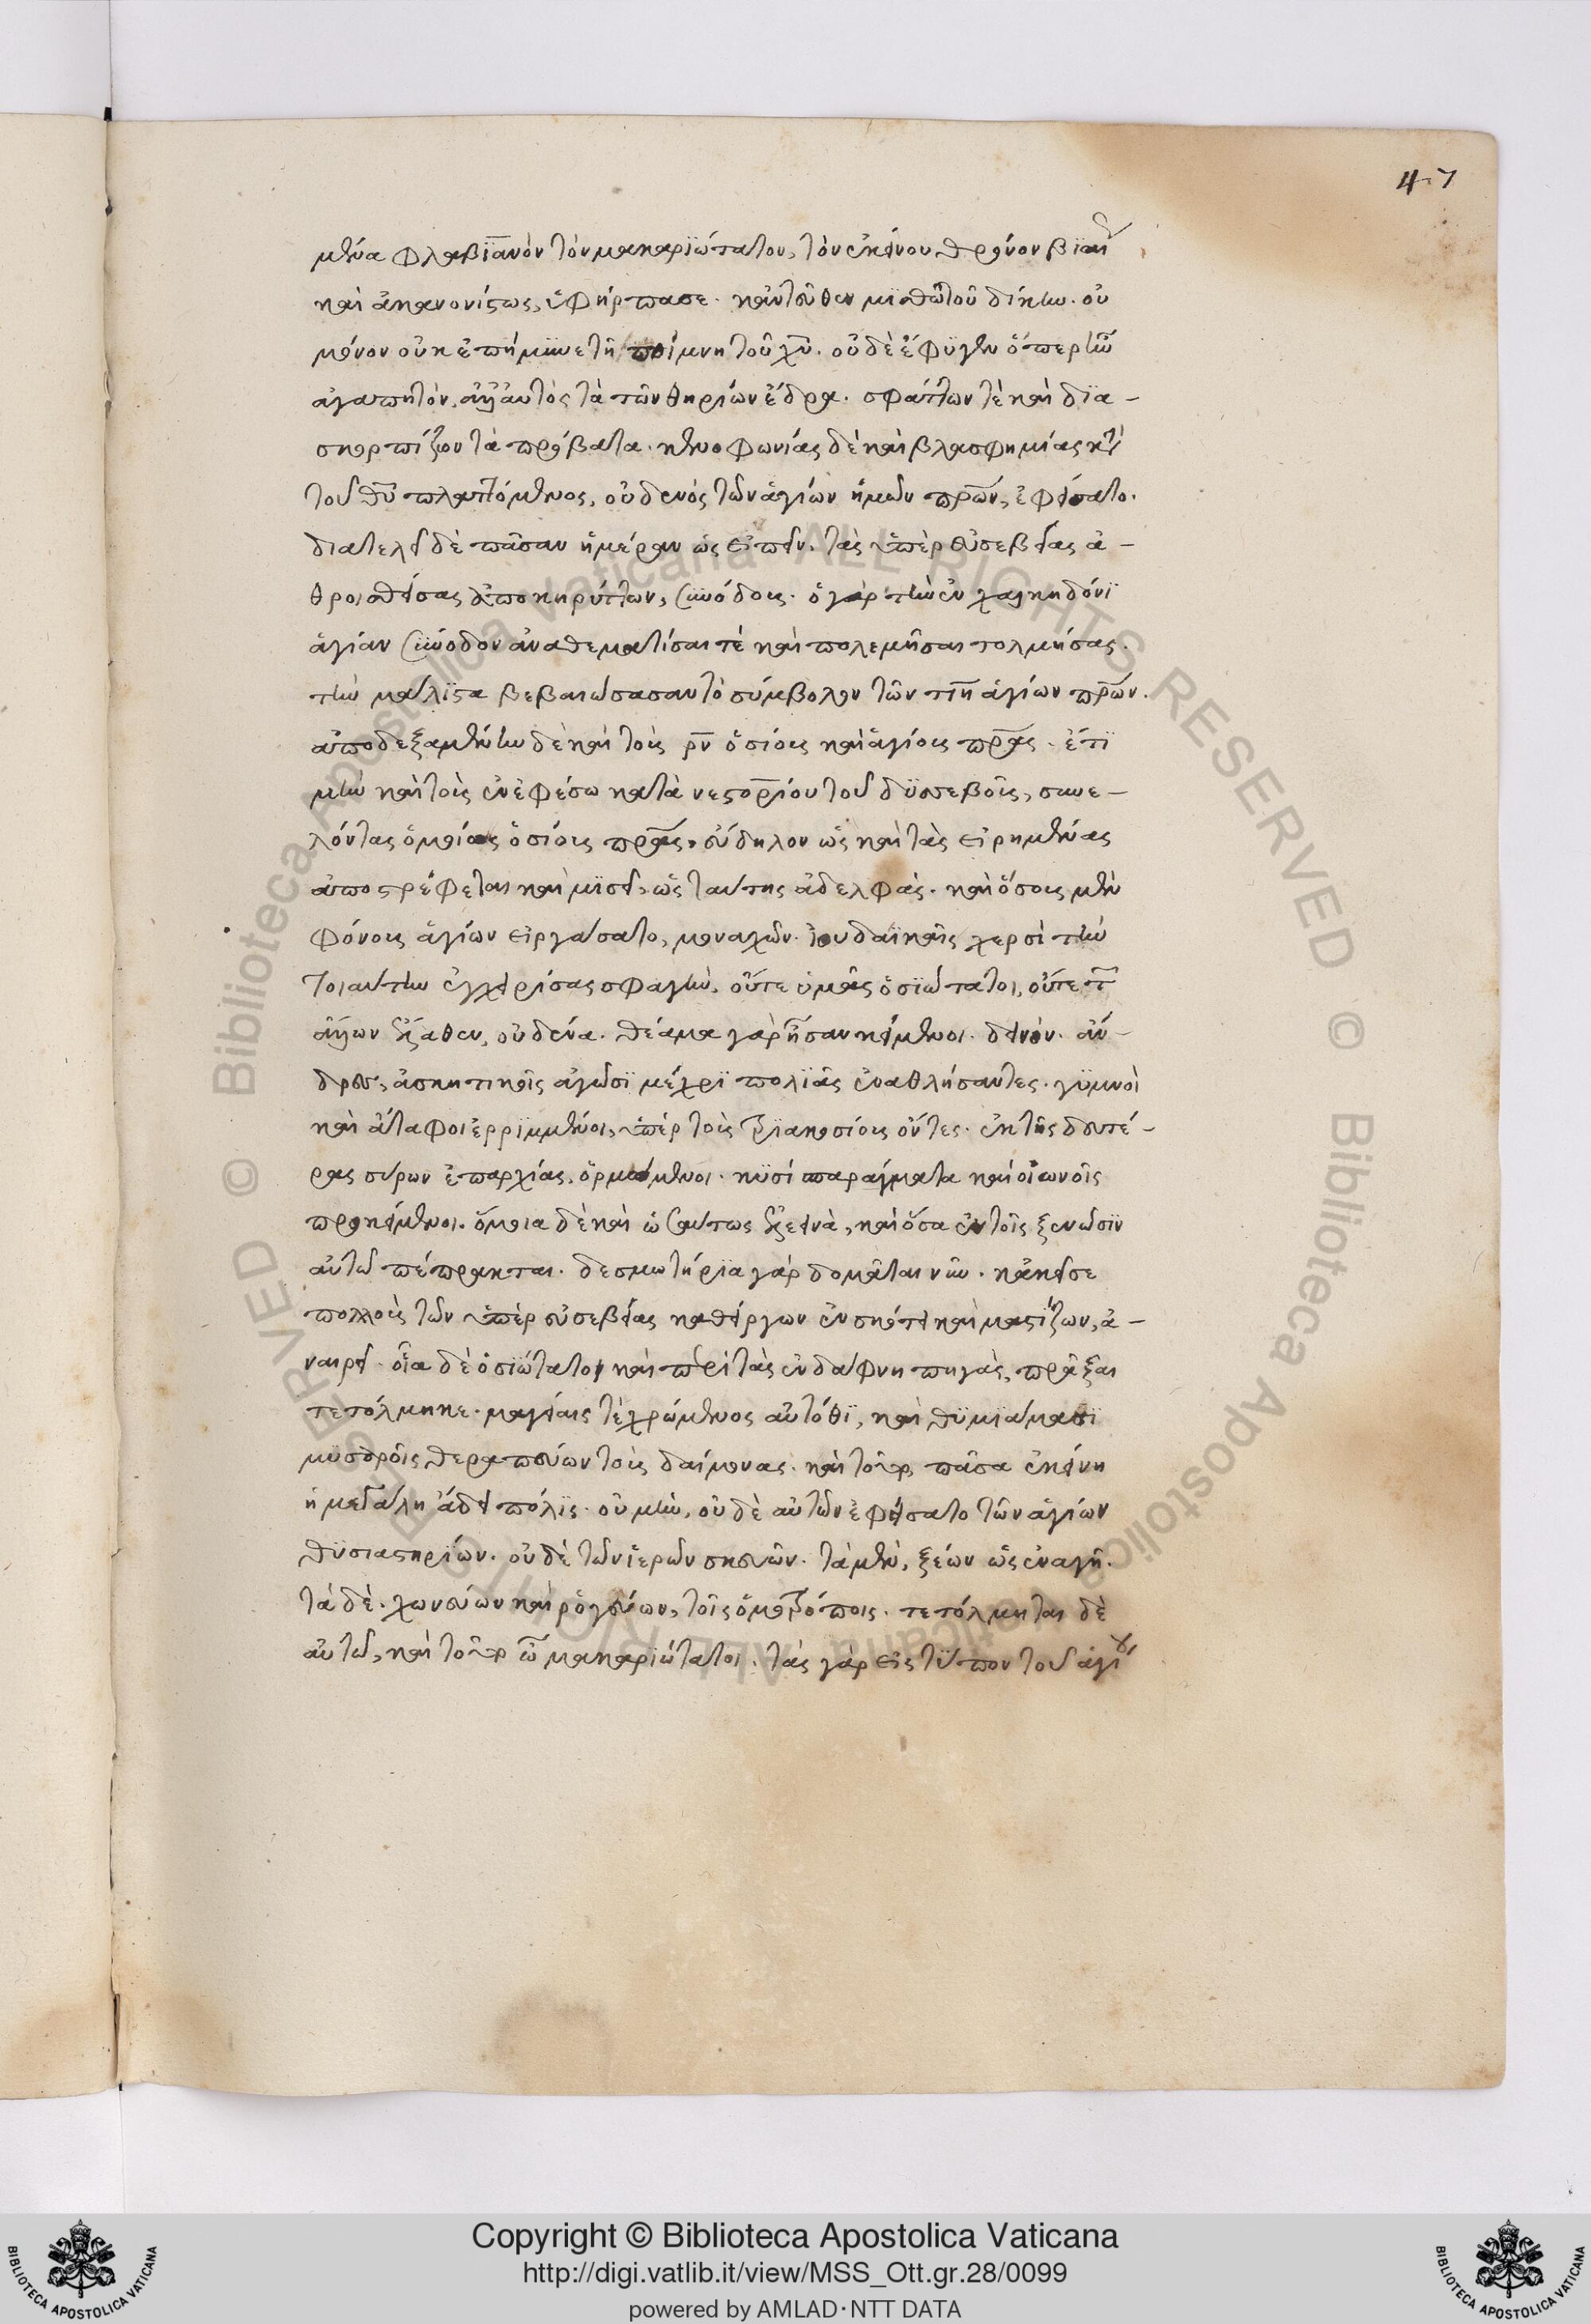 47
μένα φλαβϊανὸν τὸν μακαρϊώτατον, τὸν ἐκείνου θρόνον βϊαίως
καὶ ἀκανονίστως, ὑφήρπασε. κἀντεῦθεν μϊσθωτοῦ δίκην. οὐ
μόνον οὐκ ἐπήμϋνε τῆ ποίμνη τοῦ χῦ. οὐδὲ ἔφϋγεν ὅπερ ἦν
ἀγαπητόν. ἀλλ' αὐτὸς τὰ τῶν θηρίων ἔδρα. σφάττων τὲ καὶ δϊα-
σκορπίζων τὰ πρόβατα. κενοφωνίας δὲ καὶ βλασφημίας κτ
τοῦ θῦ πλαττόμενος, οὐδενὸς τῶν ἁγίων ἡμῶν πρων, ἐφείσατο.
διατελεῖ δὲ πᾶσαν ἡμέραν ὡς εἰπεῖν. τὰς ὑπὲρ εὐσεβείας ἀ-
θροισθείσας ἀποκηρύττων, συνόδους. ὁ γὰρ τὴν ἐν χαλκηδόνϊ
ἁγίαν σύνοδον ἀναθεματίσαι τὲ καὶ πολεμῆσαι τολμήσας.
τὴν μάλϊστα βεβαιώσασαν τὸ σύμβολον τῶν τιη ἁγίων πρων.
ἀποδεξαμένην δὲ καὶ τοὺς ρν ὁσίους καὶ ἁγίους πρας. ἔτϊ
μὴν καὶ τοὺς ἐν ἐφέσω κατὰ νεστορίου τοῦ δϋσσεβοῦς, συνε-
λόντας ὁμοίως ὁσίους πρας. εὔδηλον ὡς καὶ τὰς εἰρημένας
ἀποστρέφεται καὶ μϊσεῖ, ὡς ταύτης ἀδελφάς. καὶ ὅσους μὲν
φόνους ἁγίων εἰργάσατο, μοναχῶν. ἰουδαϊκαῖς χερσὶ τὴν
τοιαύτην ἐγχειρίσας σφαγὴν, οὔτε ὑμᾶς ὁσϊώτατοι, οὔτε τ
ἄλλων λέλαθεν, οὐδένα. θέαμα γὰρ ἦσαν κείμενοι. δεινόν. ἄν-
δρες, ἀσκητικοῖς ἀγῶσϊ μέχρϊ πολϊᾶς ἐναθλήσαντες. γϋμνοὶ
καὶ ἄταφοι ἐρρϊμμένοι, ὑπὲρ τοὺς τρϊακοσίους ὄντες. ἐκ τῆς δευτέ-
ρας σύρων ἐπαρχίας. ὁρμώμενοι. κϋσί σπαράγματα καὶ οἰωνοῖς
προκείμενοι. ὅμοια δὲ καὶ ὡσαύτως ἐλεεινὰ, καὶ ὅσα ἐν τοῖς ξενῶσϊν
αὐτῶ πέπρακται. δεσμωτήρϊα γὰρ δομᾶται νῦν. κἀκεῖσε
πολλοὺς τῶν ὑπὲρ εὐσεβείας καθείργων ἐν σκότει καὶ μαστίζων, ἀ-
ναιρεῖ. οἷα δὲ ὁσϊώτατοι καὶ περὶ τὰς ἐν δάφνη πηγὰς, πρᾶξαι
τετόλμηκε. μαγείαις τὲ χρώμενος αὐτόθϊ, καὶ θϋμϊάμασϊ
μϋσαροῖς θεραπεύων τοὺς δαίμονας. καὶ τοῦτο πᾶσα ἐκείνη
ἡ μεγάλη ἄδει πόλϊς. οὐ μὴν, οὐδὲ αὐτῶν ἐφείσατο τῶν ἁγίων
θϋσιαστηρίων. οὐδὲ τῶν ἱερῶν σκευῶν. τὰ μὲν, ξέων ὡς ἐναγῆ.
τὰ δὲ. χωνεύων καὶ ρογεύων, τοῖς ὁμοτρόποις. τετόλμηται δὲ
αὐτῶ, καὶ τοῦτο ὦ μακαριώτατοι. τὰς γὰρ εἰς τϋπον τοῦ ἁγίου
Copyright © Biblioteca Apostolica Vaticana
http://digi.vatlib.it/view/MSS_Ott.gr.28/0099
powered by AMLAD·NTT DATA